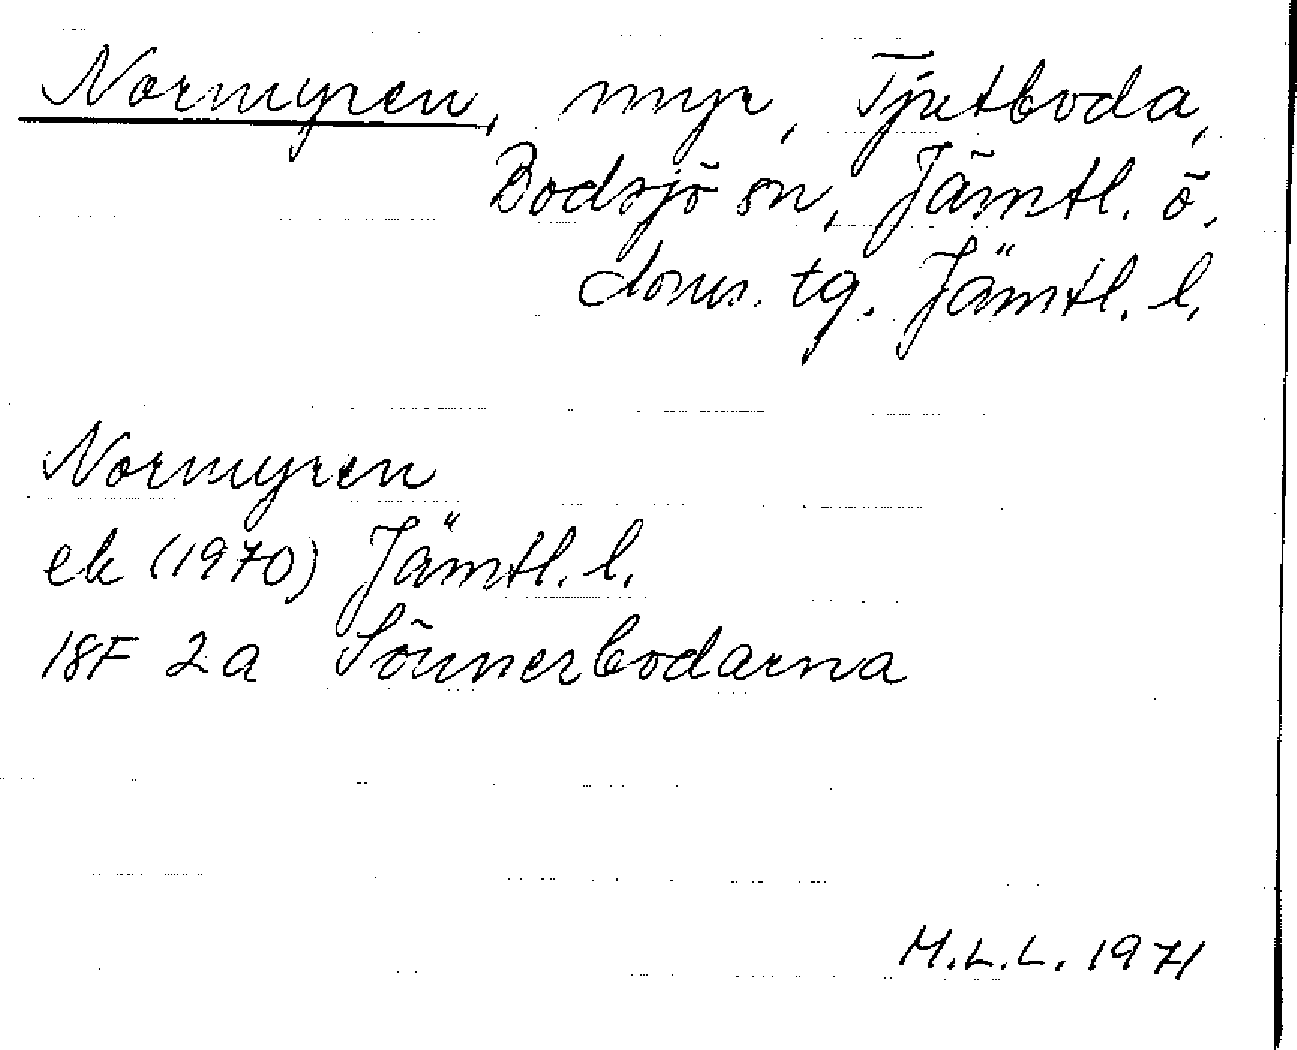 Normyren, myr, Tjutboda,
Bodsjö sn, Jämtl. ö.
doms. tg. Jämtl. l.
Normyren
ek (1970) Jämtl. l.
18F 2a Sönnerbodarna
M.L.L. 1971